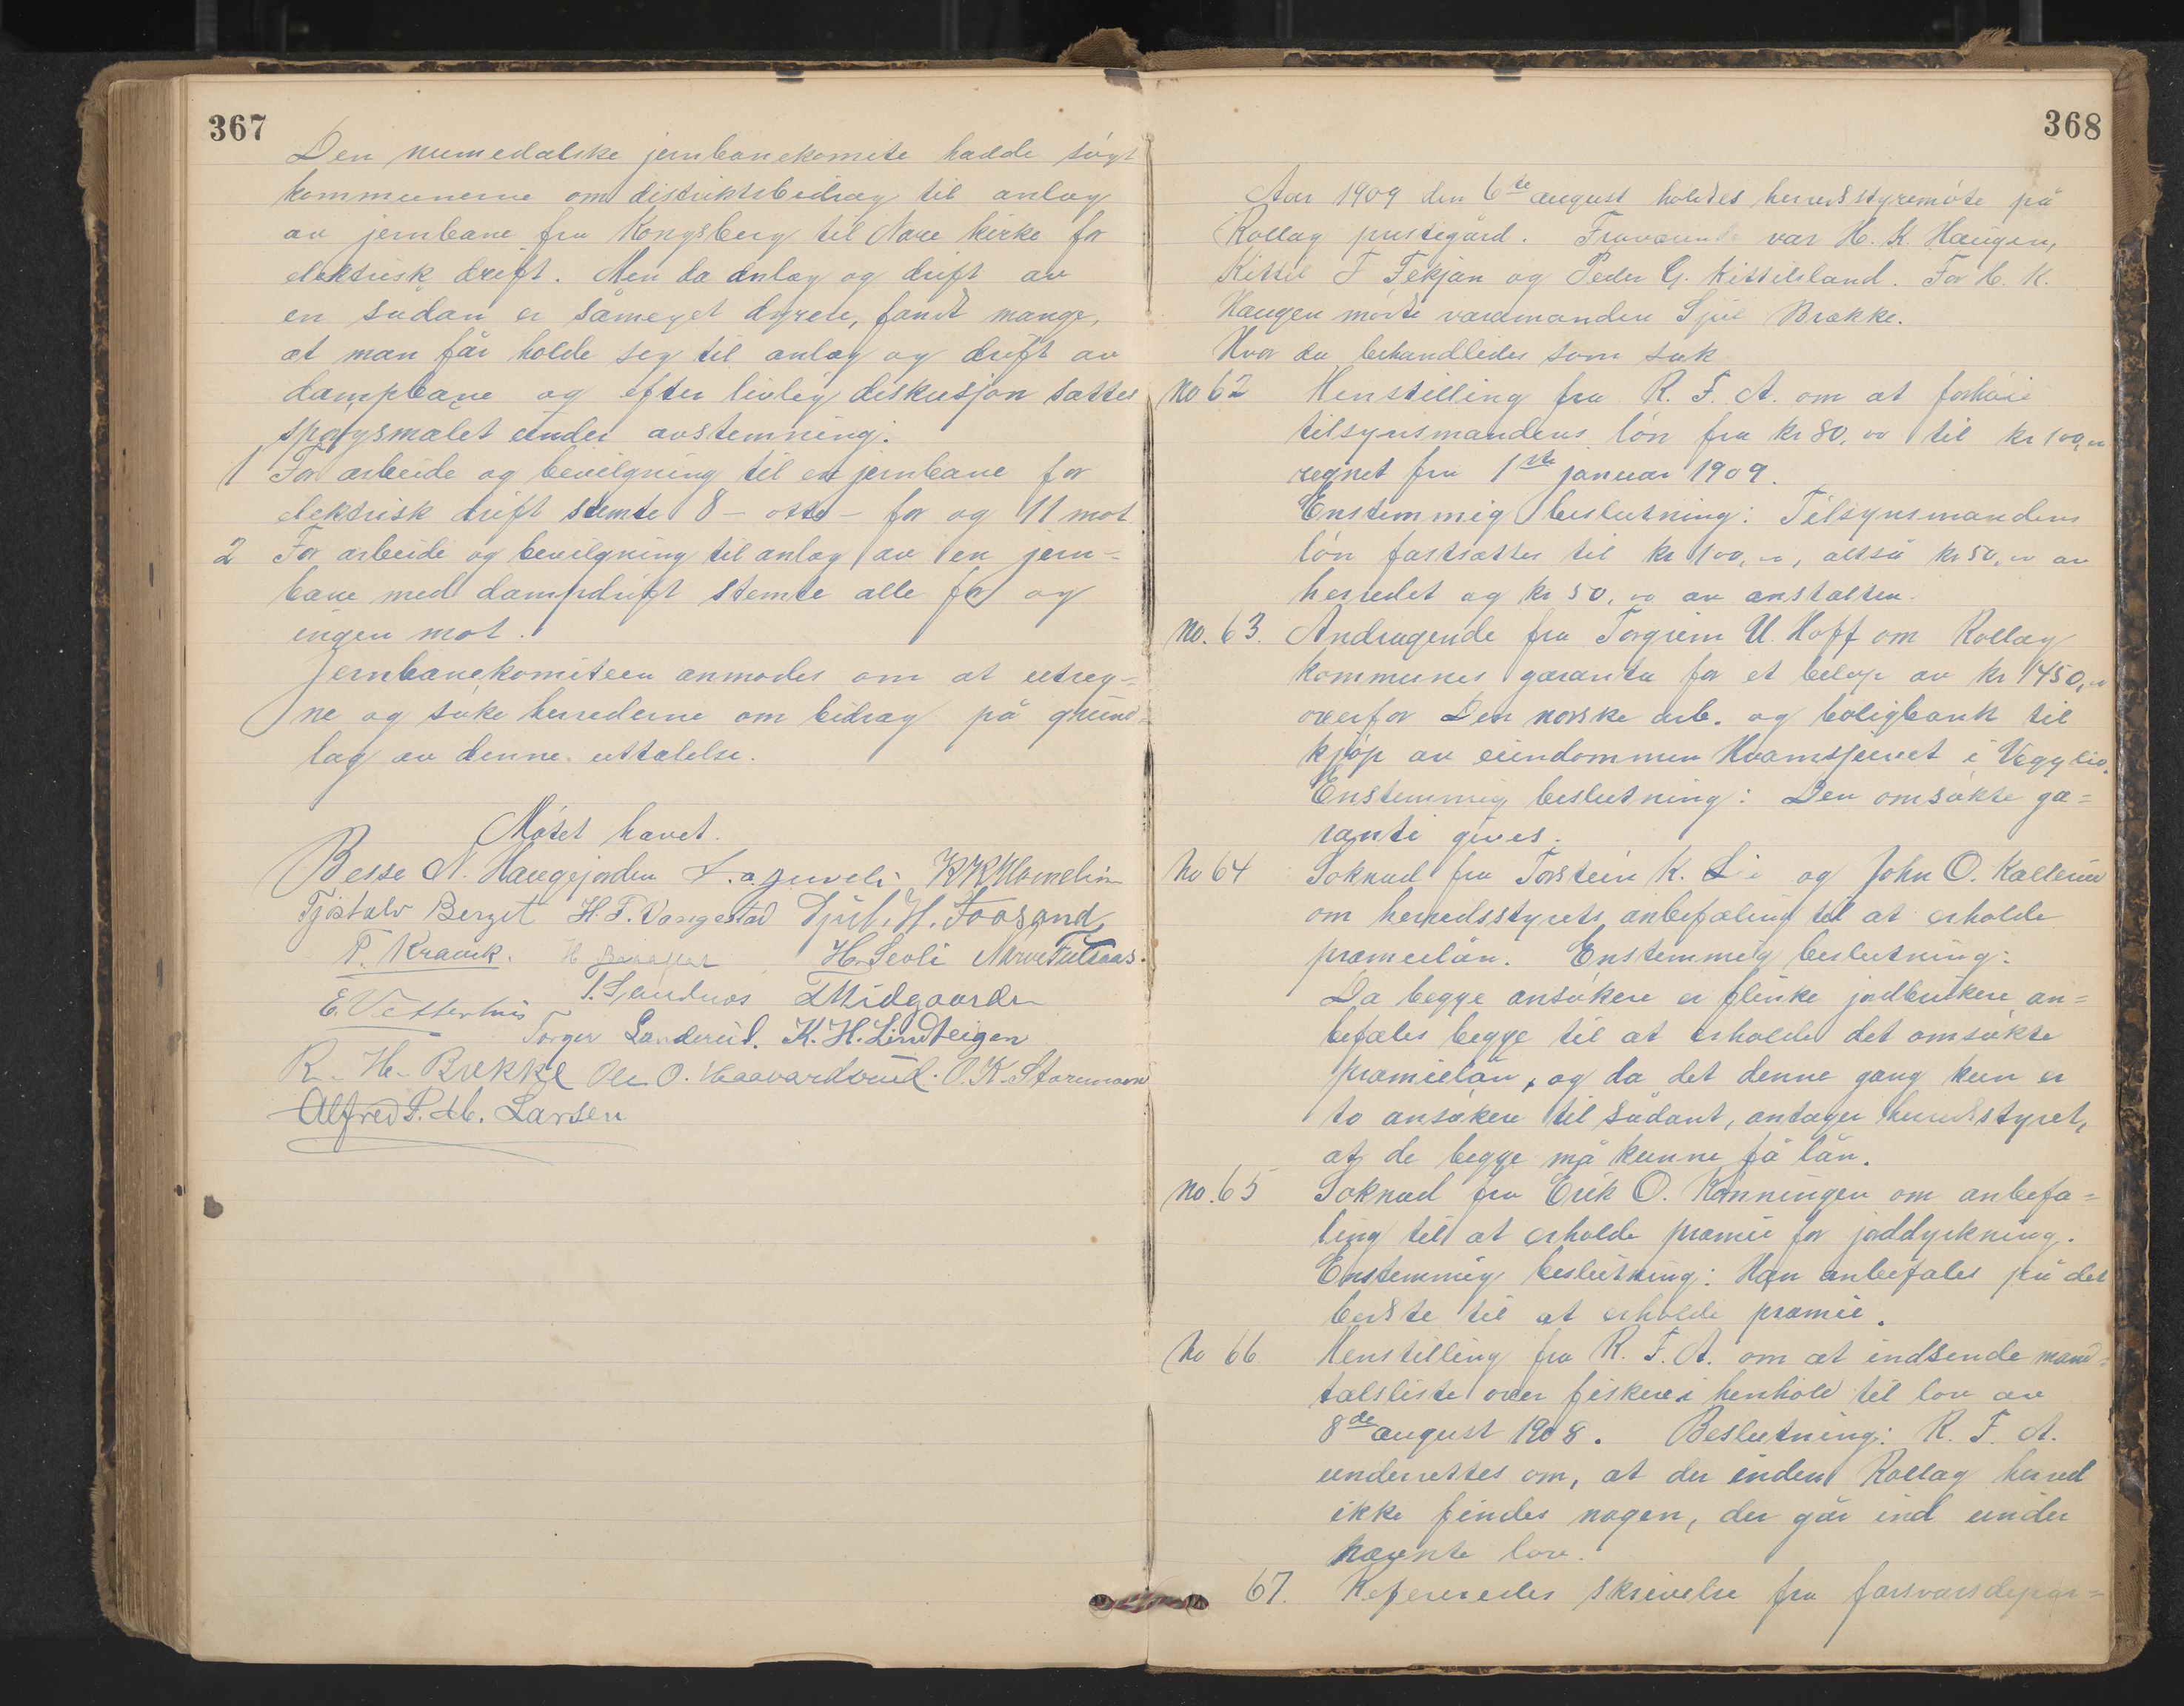 367
Den numedalske jernbanekomite hadde søgt
kommunerne om distriktsbidrag til anlæg
av jernbane fra Kongsberg til Nore kirke for
elektrisk drift. Men da anlæg og drift av
en sådan er såmeget dyrere, fandt mange,
at man får holde seg til anlæg og drift av
dampbane og efter livlig diskusjon sattes
spørgsmålet under avstemning:
1 For arbeide og bevilgning til en jernbane for
elektrisk drift stemte 8 - otte - for og 11 mot
2 For arbeide og bevilgning til anlæg av en jern=
bane med dampdrift stemte alle for og
ingen mot.
Jernbanekomiteen anmodes om at utreg=
ne og søke herrederne om bidrag på grund=
lag av denne uttalelse.
Møtet hævet.
Besse N. Haugejorden
Tjøstolv Berget H. T. Vangestad Gjul. H. Foosand
T. Kravik. H. Seoli
E. Vetterhus T. Sandnos T Midgaarden
Torger Landerud. K. H. Lindteigen
R. H. Brekke Ole O. Haavardsrud. O. K. Skaremoen
Alfred P. M. Larsen
368
Aar 1909 den 6te august holdtes herredsstyremøte på
Rollag prestegård. Fraværende var H. K. Haugen,
Kittil T Tekjan og Peder G. Kittilsland. For H. K.
Haugen møtte varamanden Gjul Brække.
Hvor da behandledes som sak
No 62 Henstilling fra R. F. A. om at forhøie
tilsynsmandens løn fra kr 80,00 til kr 100,00
regnet fra 1ste januar 1909.
Enstemmig beslutning: Tilsynsmandens
løn fastsættes til kr 100,00, altså kr 50,00 av
herredet og kr 50,00 av anstalten.
No. 63. Andragende fra Torgrim U. Hoff om Rollag
kommunes garanti for et beløp av kr 1450,00
overfor Den norske arb. og boligbank til
kjøp av eiendommen Hvamsfeivet i Veggli.
Enstemmig beslutning: Den omsøkte ga=
ranti gives.
No 64 Søknad fra Torstein K. Li og John O. Kallerud
om herredsstyrets anbefaling til at erholde
præmielån. Enstemmig beslutning:
Da begge ansøkere er flinke jordbrukere an=
befales begge til at erholde det omsøkte
præmielån, og da det denne gang kun er
to ansøkere til sådant, antager herredsstyret,
at de begge må kunne få lån.
No. 65 Søknad fra Erik O. Rønningen om anbefa=
ling til at erholde præmie for jorddyrkning.
Enstemmig beslutning: Han anbefales på det
bedste til at erholde præmie.
No 66 Henstilling fra R. F. A. om at indsende mand=
talsliste over fiskere i henhold til lov av
8de august 1908. Beslutning: R. F. A.
underrettes om, at der inden Rollag herred
ikke findes nogen, der går ind under
nævnte lov.
67. Refereredes skrivelse fra forsvarsdepar=